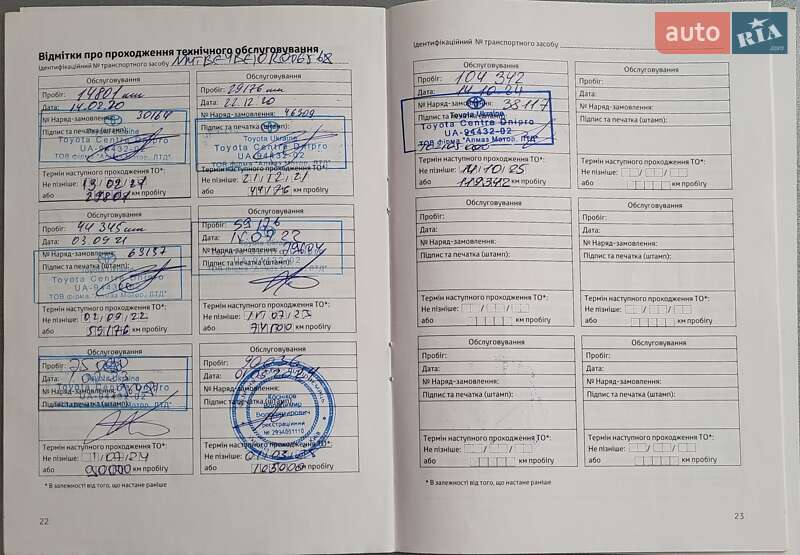 auto
RIA
.com
Відмітки про проходження технічного обслуговування
Ідентифікаційний № транспортного засобу
Обслуговування
Пробіг: 14801 km
Дата: 14.02.20
№ Наряд-замовлення: 30164
Підпис та печатка (штамп):
Toyota Centre Dnipro
UA-94432-02
ТОВ фірма "Алмаз Мотор, ЛТД"
Термін наступного проходження ТО*:
Не пізніше: 13.02.21
або 29801 км пробігу
Обслуговування
Пробіг: 29176 km
Дата: 22.12.20
№ Наряд-замовлення: 46509
Підпис та печатка (штамп):
Toyota Ukraine
Toyota Centre Dnipro
UA-94432-02
ТОВ фірма "Алмаз Мотор, ЛТД"
Термін наступного проходження ТО*:
Не пізніше: 21.12.21
або 44176 км пробігу
Обслуговування
Пробіг: 44345 km
Дата: 03.09.21
№ Наряд-замовлення: 63157
Підпис та печатка (штамп):
Toyota Centre Dnipro
UA-94432-02
ТОВ фірма "Алмаз Мотор, ЛТД"
Термін наступного проходження ТО*:
Не пізніше: 02.09.22
або 59176 км пробігу
Обслуговування
Пробіг: 59176
Дата:
№ Наряд-замовлення:
Підпис та печатка (штамп):
Термін наступного проходження ТО*:
Не пізніше:
або км пробігу
Обслуговування
Пробіг:
Дата:
Toyota Ukraine
№ Наряд-замовлення:
Toyota Centre Dnipro
UA-94432-02
Підпис та печатка (штамп):
Термін наступного проходження ТО*:
Не пізніше:
або 90000 км пробігу
Обслуговування
Пробіг: 90036
Дата:
№ Наряд-замовлення:
Підпис та печатка (штамп):
Володимирович
реєстраційний
Термін наступного проходження ТО*:
Не пізніше:
або 105000 км пробігу
* В залежності від того, що настане раніше
22
Ідентифікаційний № транспортного засобу
Обслуговування
Пробіг: 104 342
Дата: 14.10.24
№ Наряд-замовлення: 38117
Toyota Ukraine
Підпис та печатка (штамп):
Toyota Centre Dnipro
UA-94432-02
ТОВ фірма "Алмаз Мотор, ЛТД"
Термін наступного проходження ТО*:
Не пізніше: 14.10.25
або 119342 км пробігу
Обслуговування
Пробіг:
Дата:
№ Наряд-замовлення:
Підпис та печатка (штамп):
Термін наступного проходження ТО*:
Не пізніше:
або км пробігу
Обслуговування
Пробіг:
Дата:
№ Наряд-замовлення:
Підпис та печатка (штамп):
Термін наступного проходження ТО*:
Не пізніше:
або км пробігу
Обслуговування
Пробіг:
Дата:
№ Наряд-замовлення:
Підпис та печатка (штамп):
Термін наступного проходження ТО*:
Не пізніше:
або км пробігу
Обслуговування
Пробіг:
Дата:
№ Наряд-замовлення:
Підпис та печатка (штамп):
Термін наступного проходження ТО*:
Не пізніше:
або км пробігу
Обслуговування
Пробіг:
Дата:
№ Наряд-замовлення:
Підпис та печатка (штамп):
Термін наступного проходження ТО*:
Не пізніше:
або км пробігу
* В залежності від того, що настане раніше
23